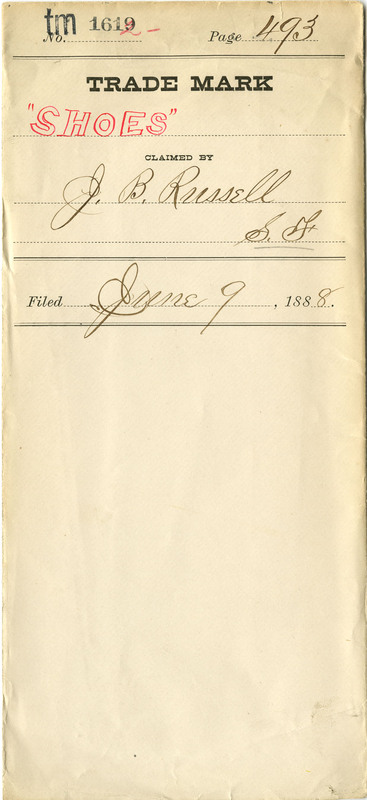 tm No. 1619 2- Page 493
TRADE MARK
"SHOES"
CLAIMED BY
J. B. Russell
S. F.
Filed June 9, 1888.